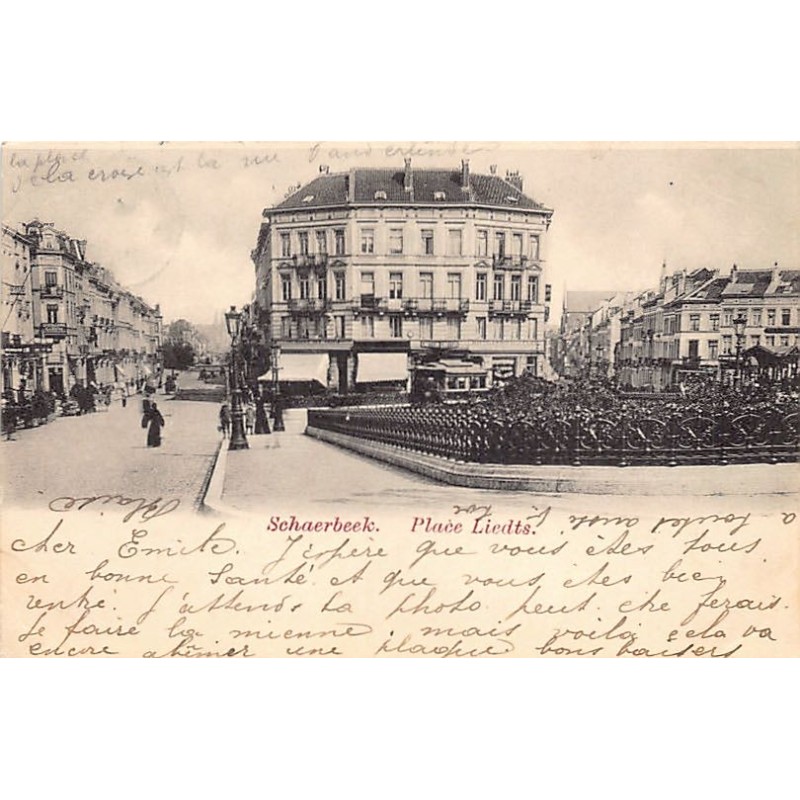 la place
la croix est la rue
Schaerbeek. Place Liedts.
cher Emile. J'espère que vous êtes tous
en bonne Santé et que vous êtes bien
rentré. J'attends ta photo peut être ferais
Je faire la mienne, mais voilà cela va
encore abîmer une plaque bons baisers
a toutet